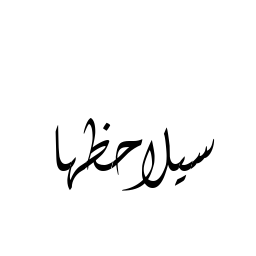 سيلاحظها